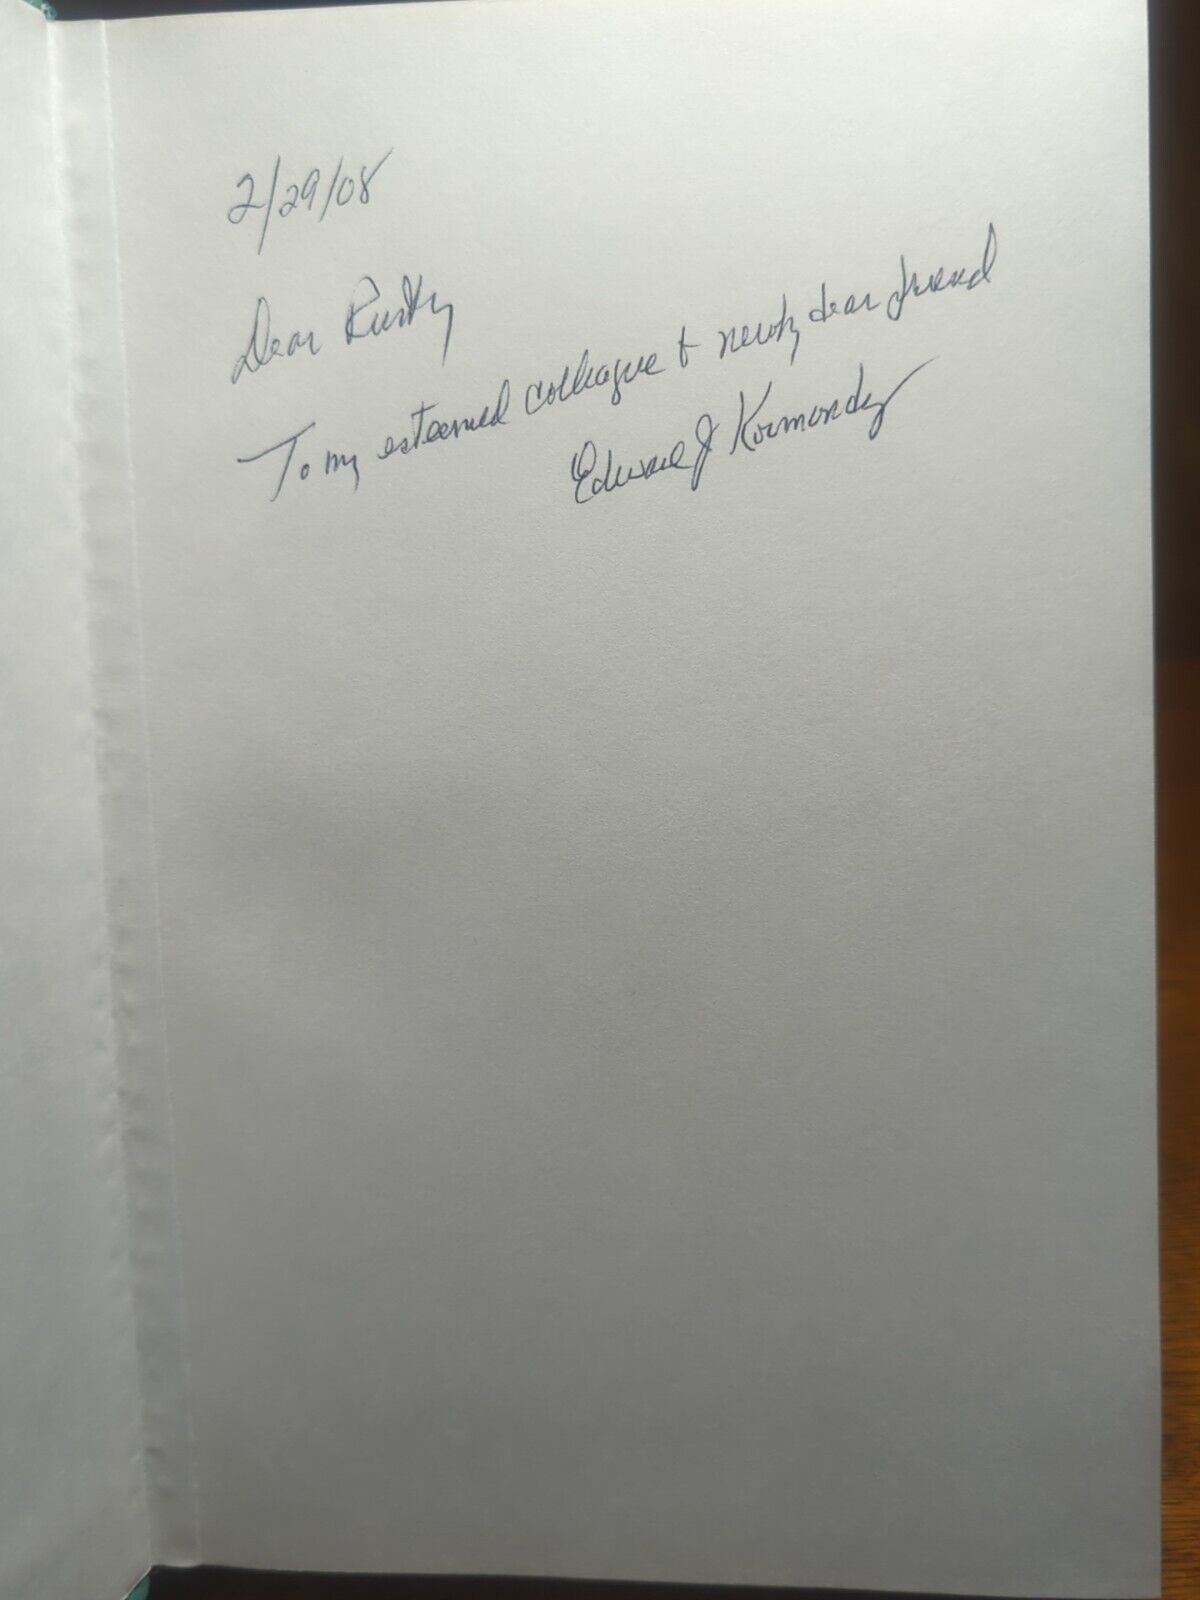 2/29/08
Dear Rusty
To my esteemed colleague & newly dear friend
Edward J Kormondy